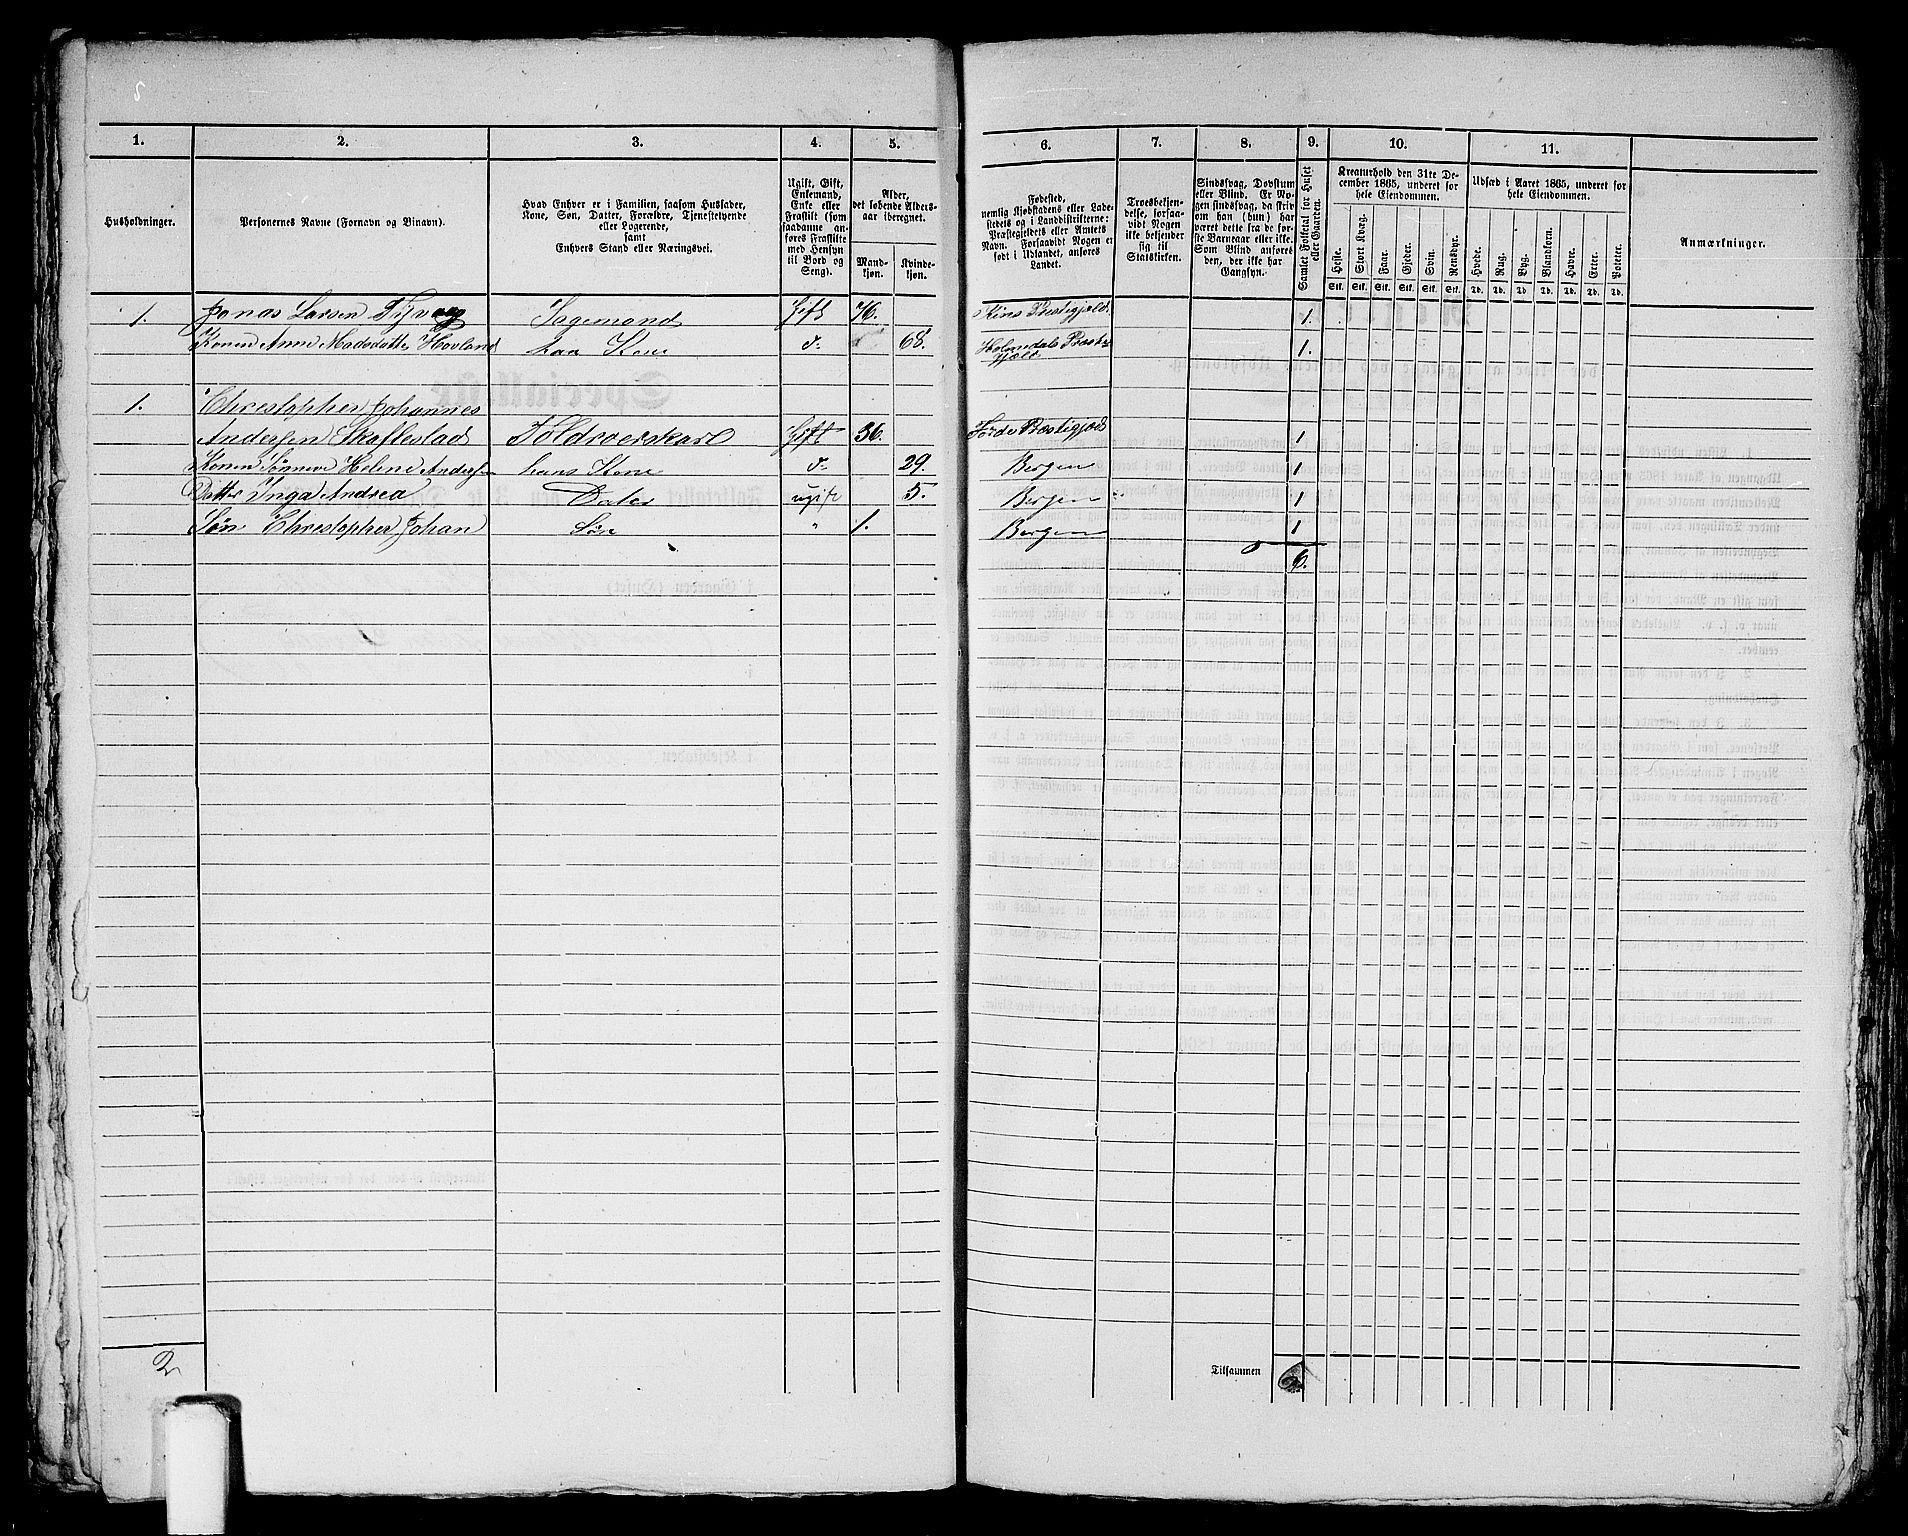 1.
2.
3.
4.
5.
Husholdninger.
Personernes Navne (Fornavn og Binavn).
Hvad Enhver er i Familien, saasom Husfader,
Kone, Søn, Datter, Forældre, Tjenestetyende
eller Logerende,
samt
Enhvers Stand eller Næringsvei.
Ugift, Gift,
Enkemand,
Enke eller
Fraskilt (som
saadanne an-
føres Fraskilte
med Hensyn
til Bord og
Seng).
Alder,
det løbende Alders-
aar iberegnet.
Mand-
kjøn.
Kvinde-
kjøn.
1. Jonas Larsen Sagemand Gift 76.
Konen Anne Madsdatter Hovland Kone d- 68.
1. Christopher Johannes
Andersen Skaflestad Toldroerskarl Gift 36.
Konen Helene Andersen hans Kone d- 29.
Datter Inga Andrea Dater ugift 5.
Søn Christopher Johan Søn " 1.
2
6.
7.
8.
9.
10.
11.
Fødested,
nemlig Kjøbstadens eller Lade-
stedets og i Landdistrikterne:
Præstegjeldets eller Amtets
Navn. Forsaavidt Nogen er
født i Udlandet, anføres
Landet.
Troesbekjen-
delse, forsaa-
vidt Nogen
ikke bekjender
sig til
Statskirken.
Sindssvag, Døvstum
eller Blind. Er No-
gen sindssvag, da skriv
om han (hun) har
været dette fra de før-
ste Barneaar eller ikke.
Som Blind anføres
den, der ikke har
Gangsyn.
Samlet Folketal for Huset
eller Gaarden.
Kreaturhold den 31te De-
cember 1865, underet for
hele Eiendommen.
Heste.
Stort Kvæg.
Faar.
Gjeder.
Svin.
Rensdyr.
Stk. Stk. Stk. Stk. Stk. Stk.
Udsæd i Aaret 1865, underet for
hele Eiendommen.
Hvede.
Rug.
Byg.
Blandkorn.
Havre.
Erter.
Poteter.
Td. Td. Td. Td. Td. Td. Td.
Anmærkninger.
Kins Præstegjeld. 1.
1.
Førde Præstegjeld 1
Bergen 1
Bergen 1
Bergen 1
6.
Tilsammen 6